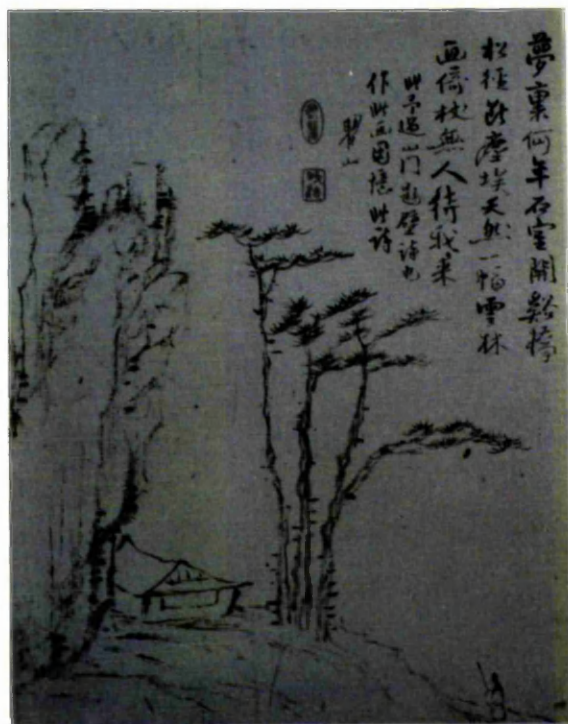 夢裏何年石室開谿橋
松徑斷塵埃天然一幅雲林
画倚杖無人待我來
此予山門題壁詩也
作此画因憶此詩
瞿山